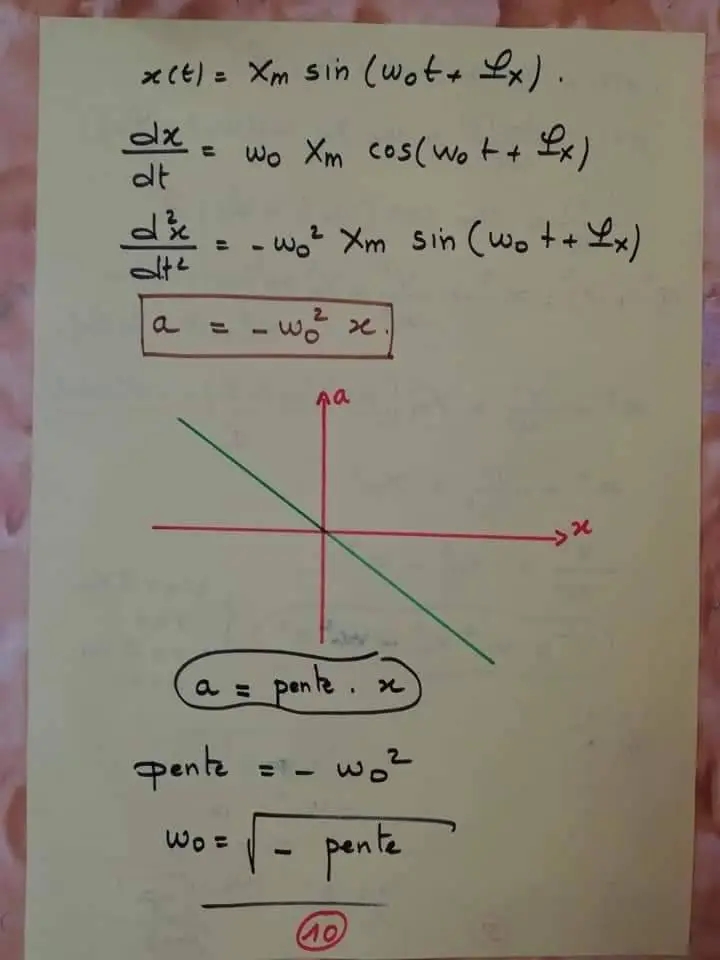 x(t) = Xm sin (ω₀t + φx).
dx/dt = ω₀ Xm cos(ω₀ t + φx)
d²x/dt² = -ω₀² Xm sin (ω₀ t + φx)
a = -ω₀² x.
a
x
a = pente . x
pente = - ω₀²
ω₀ = √(- pente)
10